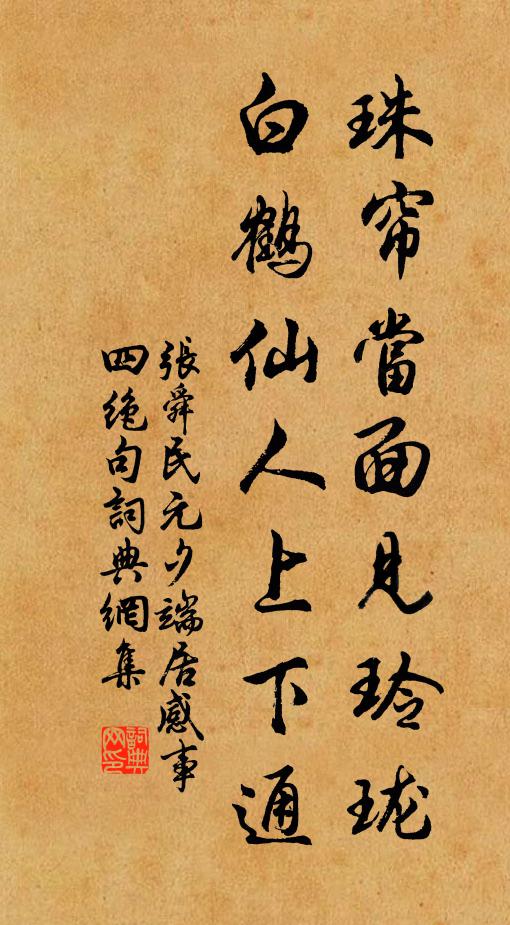 珠帘當面見玲珑
白鶴仙人上下通
張舜民元夕端居感事
四絶句詞典網集
詞典網印